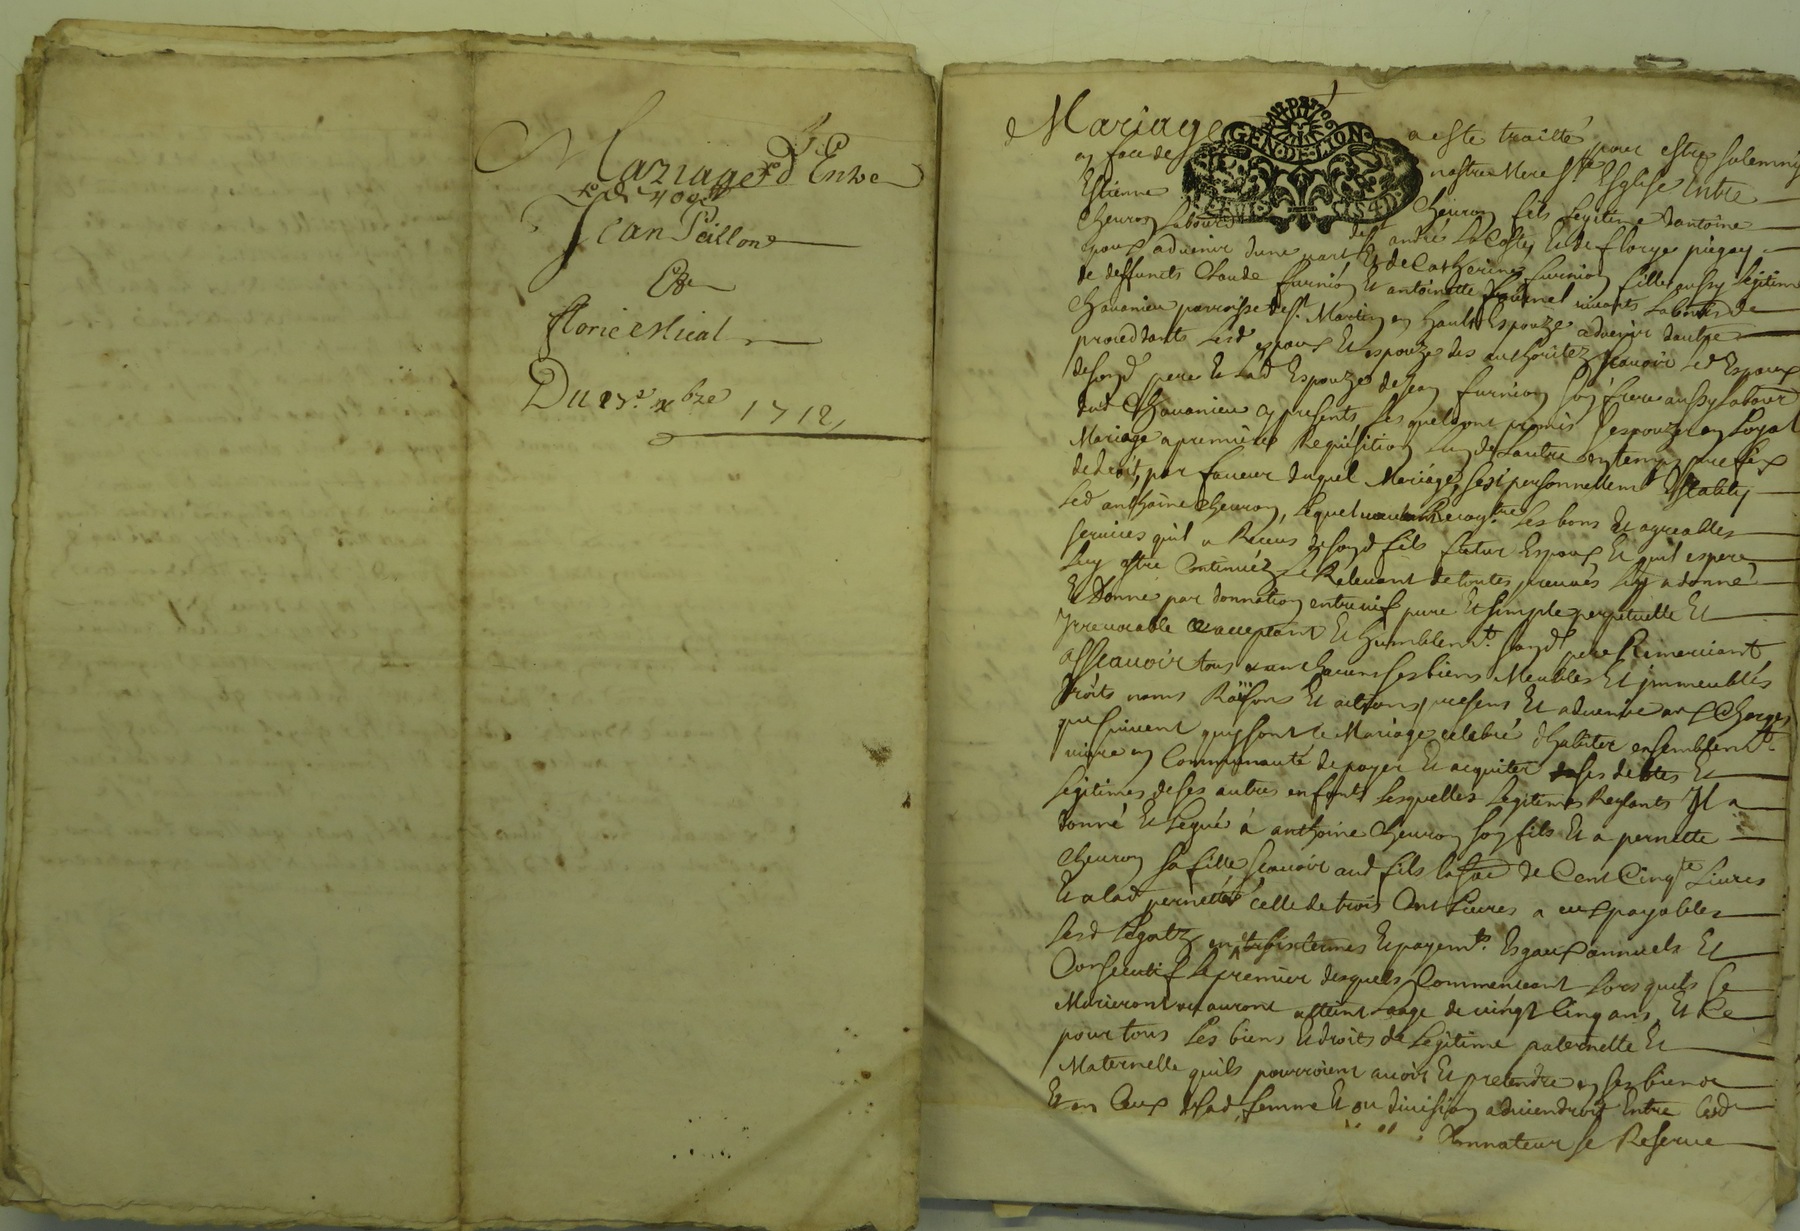 Mariage d'Entre
Jean Peillon
Et
florie Mical
Du 27.e xbre 1712
Mariage a esté traitté pour estre solemnizé
en face de nostre Mere Ste Esglise Entre
Estienne Cheuron fils legitime d'antoine
Cheuron Labourr de St andré La Coste, Et de florye piegay
Espoux aduenir d'une part Et de Catherine furnion fille aussy legitime
de deffuncts Claude furnion Et antoinette vivants Labours de
Chauanieu parroisse de St. Martin en hault Espouze aduenir dautre
proceddants lesd espoux Et espouze des authoritez sçauoir led Espoux
desond pere Et Lad Espouze de Jean furnion son frere aussy Labour
dud Chauanieu cy presents Lesquels ont promis s'espouzer en Loyal
Mariage a premiere Requisition Lun de Lautre en temps prefix
de droit, par faueur duquel Mariage, s'est personnellemt Estably
Led anthoine Cheuron, Lequel Les bons Et agreables
seruices qu'il a Receus desond fils futur Espoux Et quil espere
luy estre Continuéz Le Releuant de toutes preuues luy a donné
Et Donne par donnation entreuifs pure Et simple perpetuelle Et
Irreuocable acceptant Et humblemt. sond pere Remerciant
assauoir tous un chacuns ses biens Meubles Et immeubles
droits noms Raisons Et actions presens Et aduenir aux Charges
que suiuent qui sont le Mariage celebré d'habiter ensemblemt.
viure en Communauté de payer Et acquiter ses debtes Et
legitimes de ses autres enfants lesquelles legitimes Il a
donné Et Legué à anthoine Cheuron son fils Et a pernette
Cheuron sa fille sçauoir aud fils la so de Cent Cinqte Liures
Et a lad pernette celle de trois Cent Liures a eux payables
Lesd Legatz en trois termes Et payemts. Esgaux annuels Et
Consecutifs Le premier desquels Commenceant Lors quils se
Marieront ou auront atteint Laage de vingt Cinq ans, Et Ce
pour tous Les biens Et droits de Legitime paternelle Et
Maternelle quils pourroient auoir Et pretendre en ses biens
Et en Ceux de sad femme Et ou diuision aduiendroit Entre Lesd
donnateur se Reserue